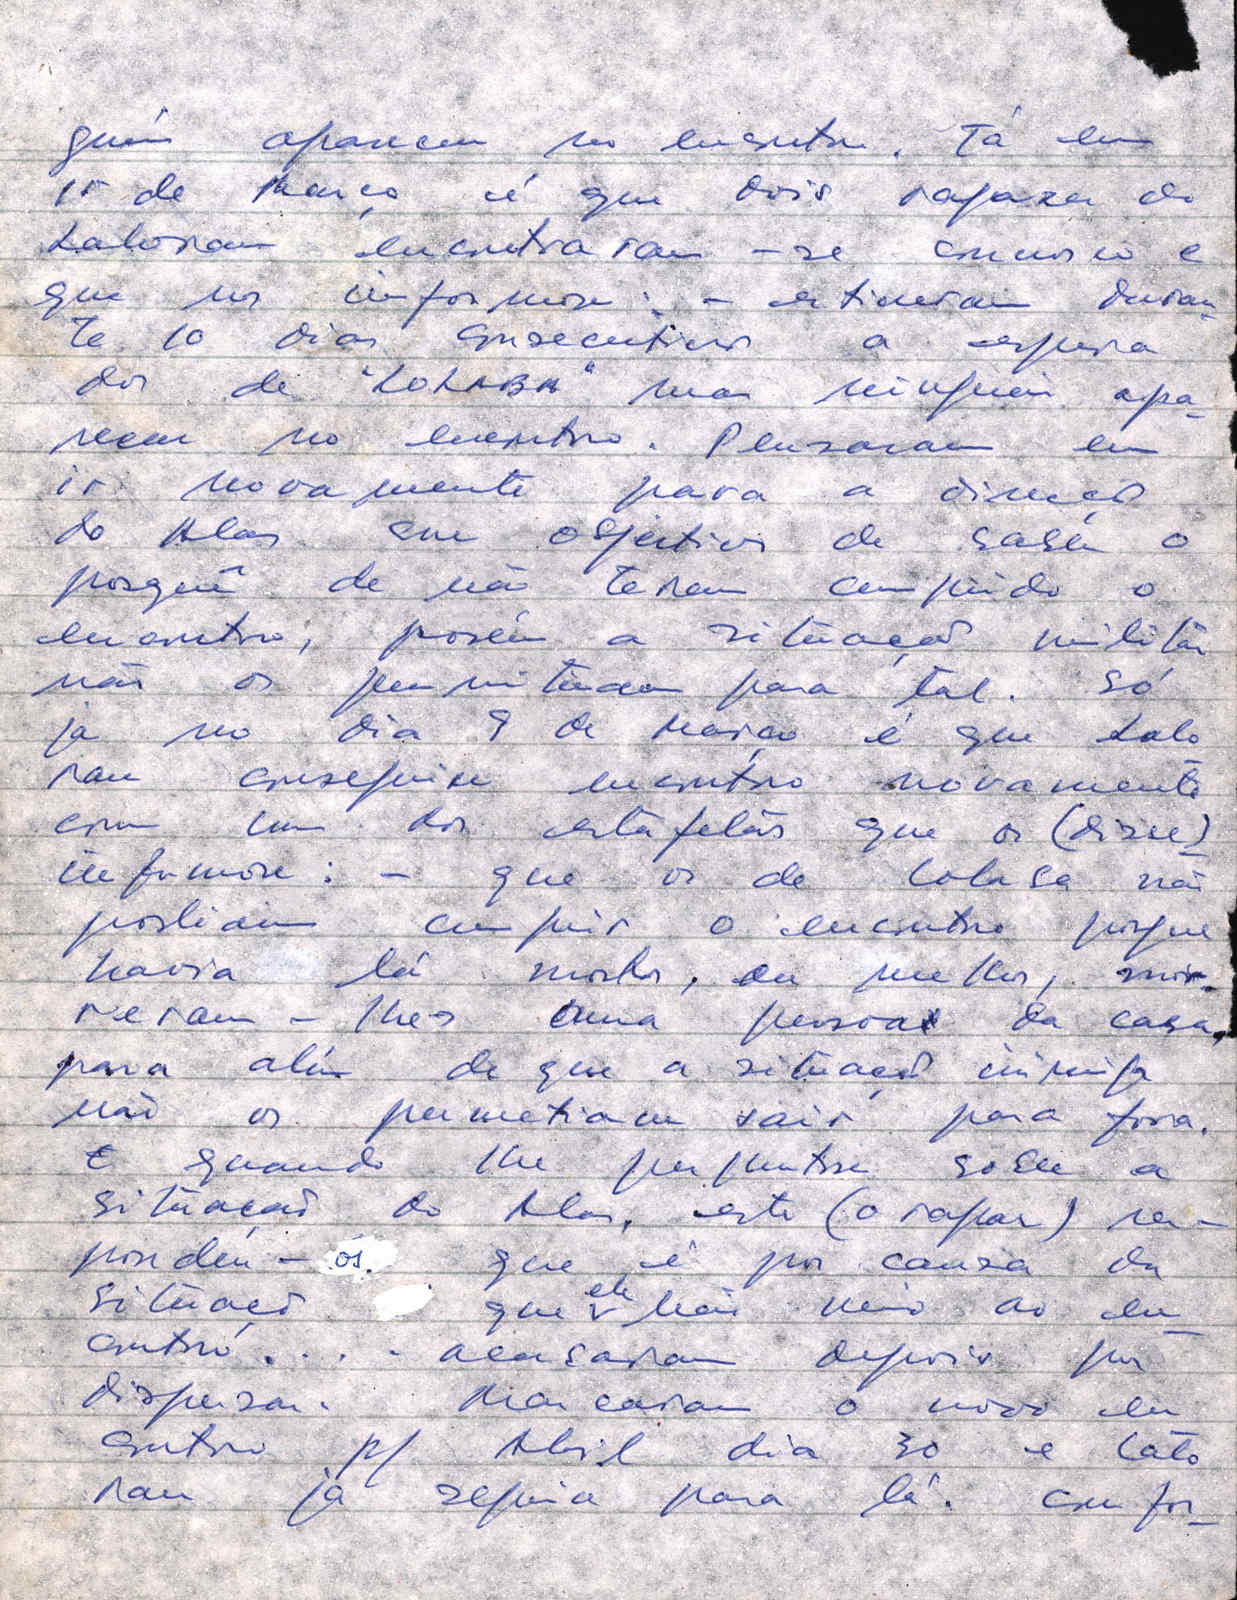 guém apareceu no encontro. Já em
15 de Março é que dois rapazes do
Laboran encontraram-se connosco e
que nos informou: - estiveram duran-
te 10 dias consecutivos a espera
dos de "LOLABA" mas ninguém apa-
receu no encontro. Pensaram em
ir novamente para a direcção
do Alas com objectivos de saber o
porquê de não teram cumprido o
encontro, porém a situação militar
não os permitiram para tal. Só
já no dia 9 de Março é que Labo
ran conseguiu encontro novamente
com um dos estafetas que os (disse)
informou: - que os de Lolaba não
podiam cumprir o encontro porque
havia lá morto, ou melhor, mor-
reram-lhes uma pessoa da casa,
para além de que a situação inimiga
não os permetiam sair para fora.
E quando lhe perguntou sobre a
situação do Alas, este (o rapaz) res-
pondeu-os. que é por causa da
situação que ele não veio ao en-
contro.... acabaram depois por
dispersar. Marcaram o novo en
contro p/ Abril dia 30 e Labo
ran já seguia para lá. Confor-